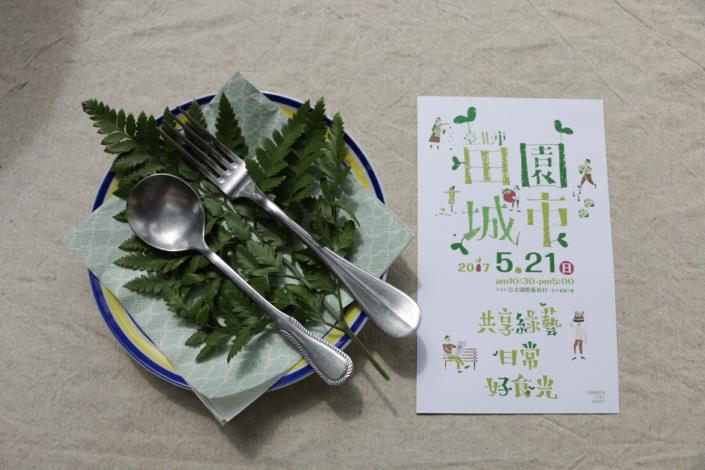 臺北市
田園
城市
2017 5.21 日
am10:30-pm5:00
>>> 台北國際藝術村
共享綠藝
日常
好食光
GARDEN
CITY
TAIPEI